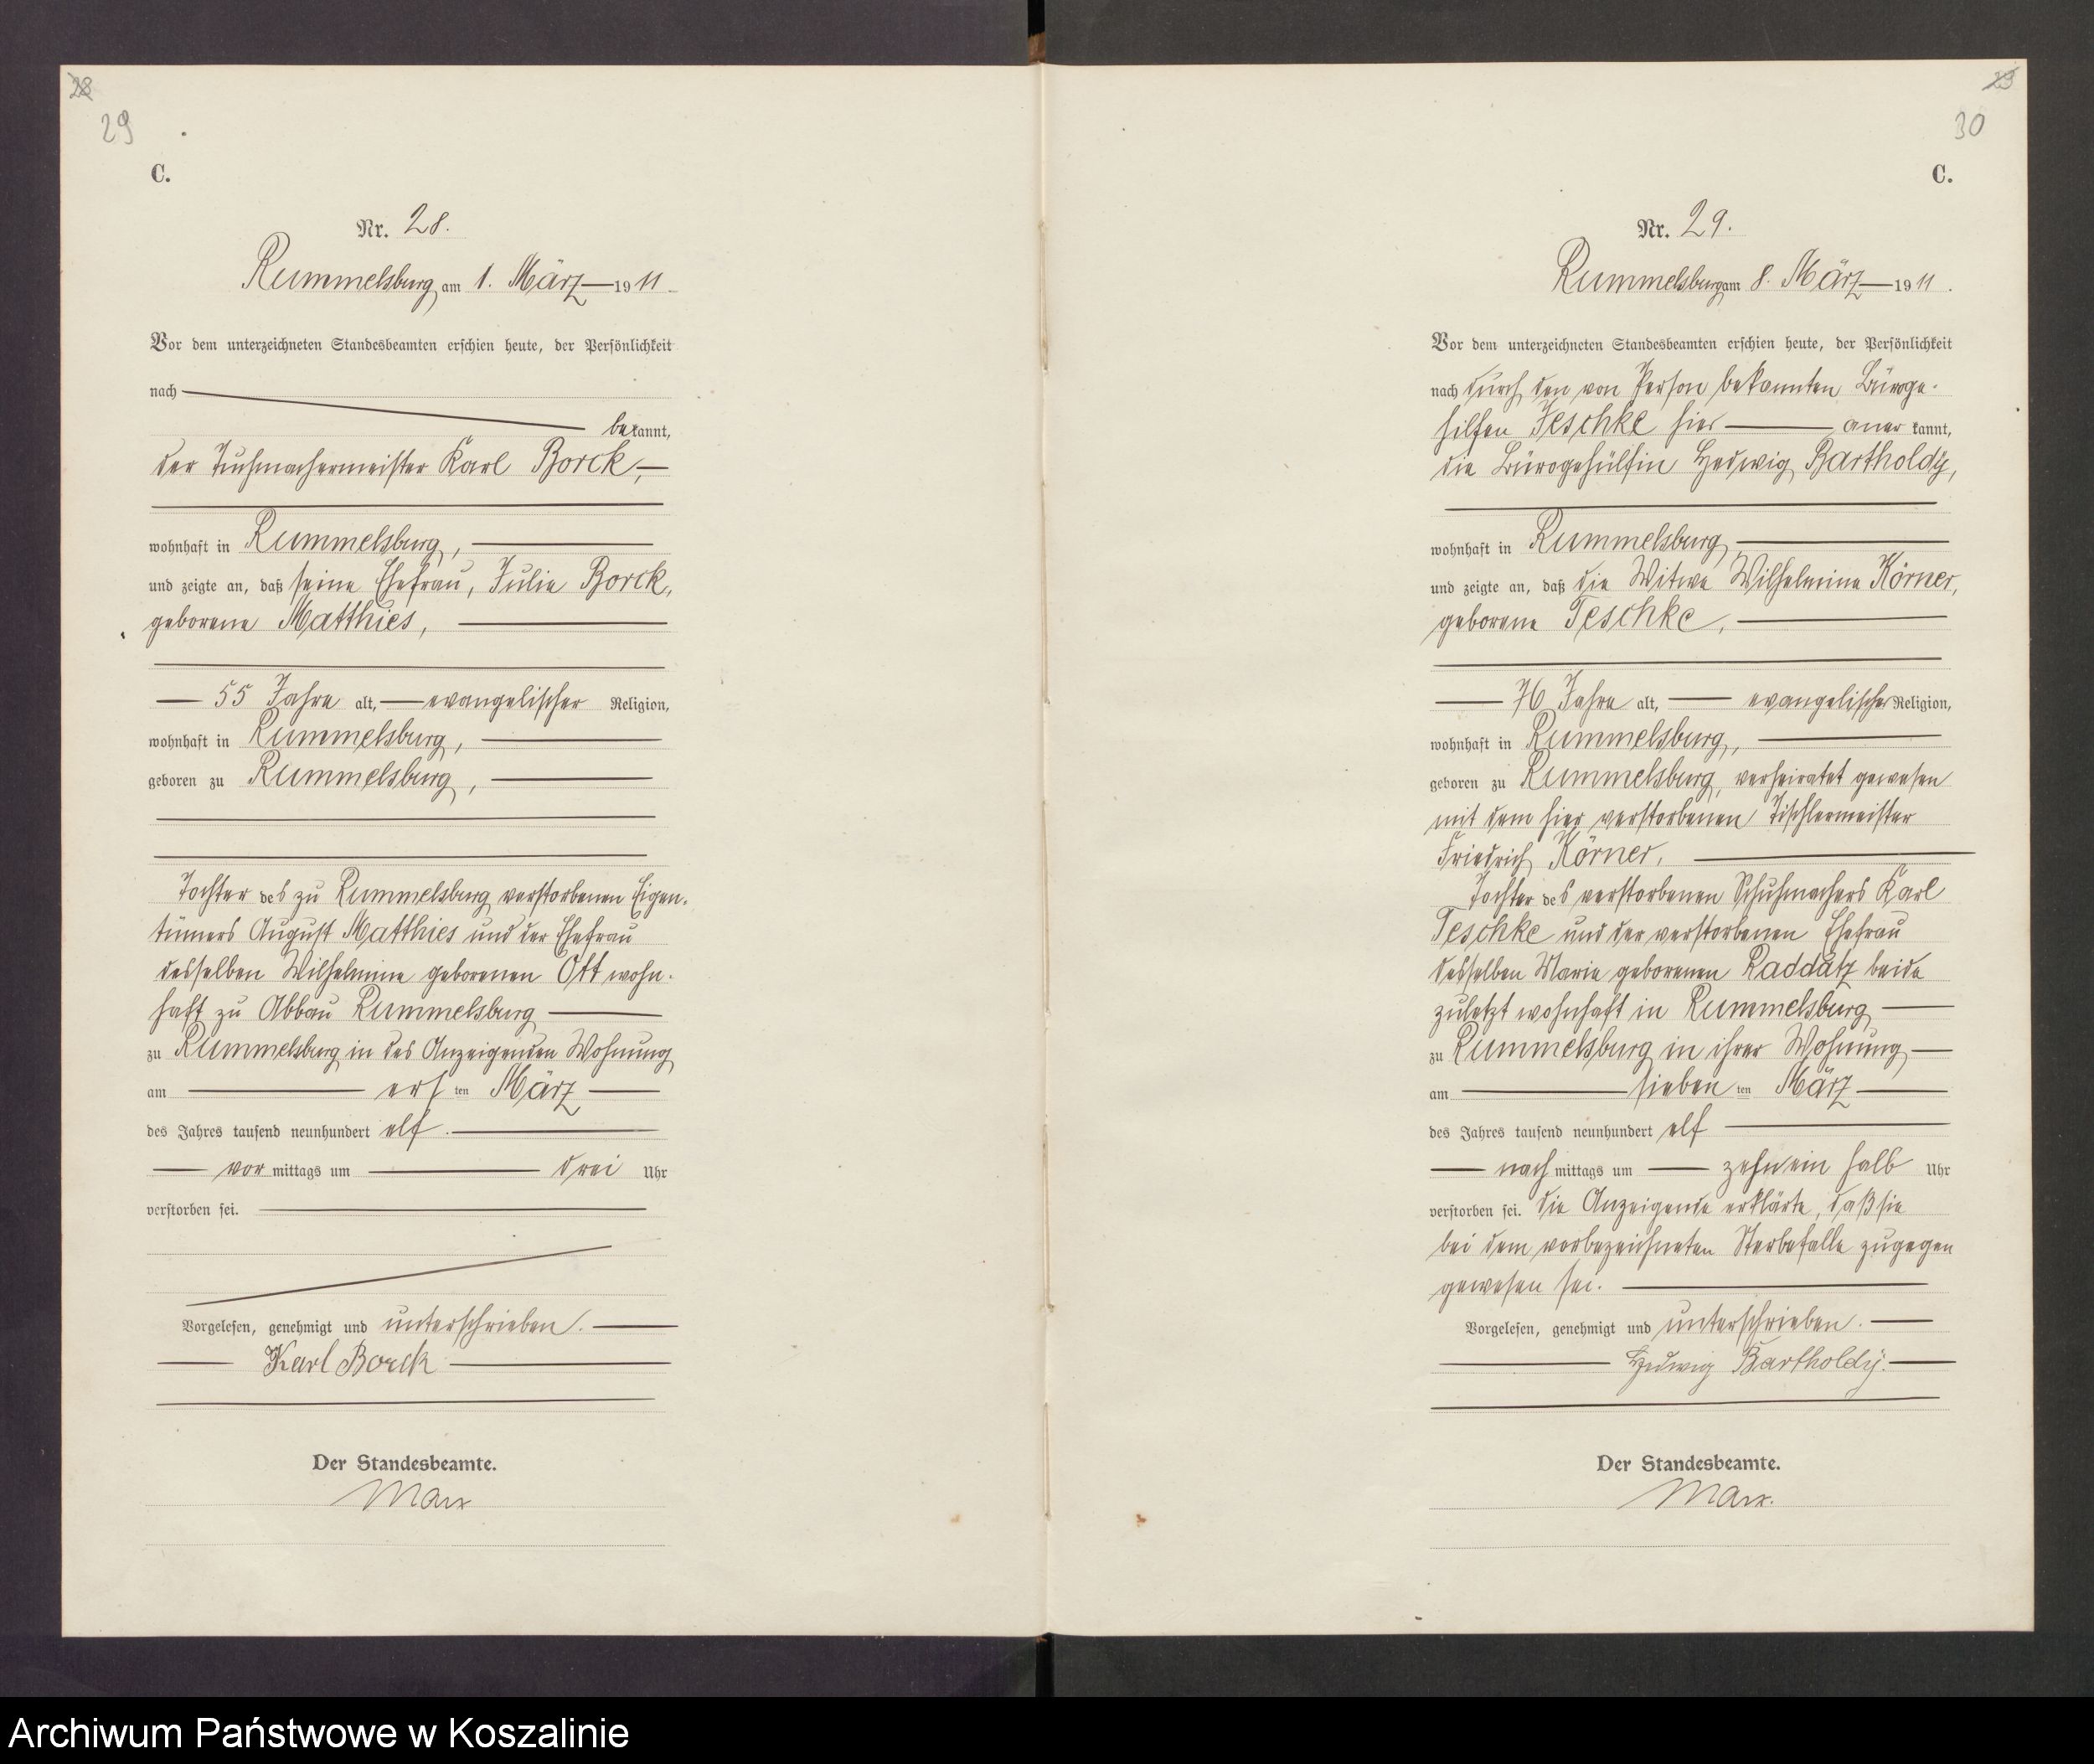 28
29
C.
Nr. 28.
Rummelsburg am 1. März 1911
Vor dem unterzeichneten Standesbeamten erschien heute, der Persönlichkeit
nach
bekannt,
der Tuchmachermeister Karl Borck,
wohnhaft in Rummelsburg,
und zeigte an, daß seine Ehefrau, Julie Borck,
geborene Matthies,
55 Jahre alt, evangelischer Religion,
wohnhaft in Rummelsburg,
geboren zu Rummelsburg,
Tochter des zu Rummelsburg verstorbenen Eigen-
tümers August Matthies und der Ehefrau
desselben Wilhelmine geborenen Ott wohn-
haft zu Abbau Rummelsburg
zu Rummelsburg in des Anzeigenden Wohnung
am ersten März
des Jahres tausend neunhundert elf
vormittags um drei Uhr
verstorben sei.
Vorgelesen, genehmigt und unterschrieben.
Karl Borck
Der Standesbeamte.
Marx
29
30
C.
Nr. 29.
Rummelsburg am 8. März 1911.
Vor dem unterzeichneten Standesbeamten erschien heute, der Persönlichkeit
nach durch den von Person bekannten Büroge-
hilfen Jeschke hier anerkannt,
die Bürogehülfin Hedwig Bartholdy,
wohnhaft in Rummelsburg
und zeigte an, daß die Witwe Wilhelmine Körner,
geborene Teschke,
76 Jahre alt, evangelischer Religion,
wohnhaft in Rummelsburg,
geboren zu Rummelsburg, verheiratet gewesen
mit dem hier verstorbenen Tischlermeister
Friedrich Körner,
Tochter des verstorbenen Schuhmachers Karl
Teschke und der verstorbenen Ehefrau
desselben Marie geborenen Raddatz beide
zuletzt wohnhaft in Rummelsburg
zu Rummelsburg in ihrer Wohnung
am siebenten März
des Jahres tausend neunhundert elf
nachmittags um zehn ein halb Uhr
verstorben sei. Die Anzeigende erklärte, daß sie
bei dem vorbezeichneten Sterbefalle zugegen
gewesen sei.
Vorgelesen, genehmigt und unterschrieben.
Hedwig Bartholdy.
Der Standesbeamte.
Marx.
Archiwum Państwowe w Koszalinie